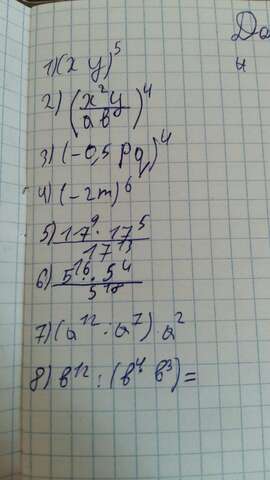 До
и
1) (x y)^5
2) (x^2 y / a b)^4
3) (-0,5 pq)^4
4) (-2m)^6
5) 17^9 · 17^5 / 17^13
6) 5^16 · 5^4 / 5^18
7) (a^12 : a^7) · a^2
8) b^12 : (b^4 b^3) =